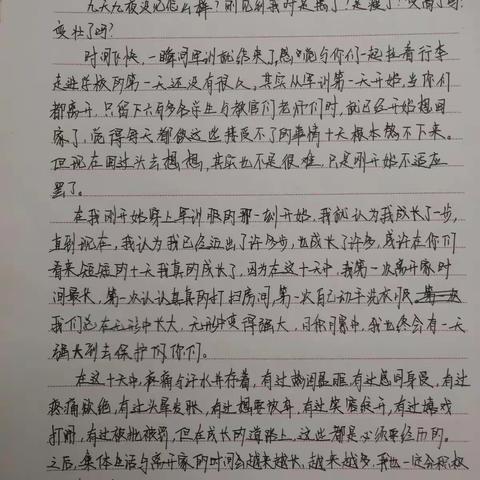 九天九夜没见怎么样？刚见到我时是
变壮了吗？
时间飞快，一瞬间军训就结束了，与你们一起拉着行李
走进学校的第一天还没有很久，其实从军训第一天开始，当你们
都离开，只留下六百多名学生与教官们老师们时，就已经开始想回
家了，觉得每天都做这些接受不了的事情十天根本熬不下来。
但现在回过头去想想，其实也不是很难，只是刚开始不适应
罢了。
在我刚开始穿上军训服的那一刻开始，我就认为我成长了一步，
直到现在，我认为我已经迈出了许多步，也成长了许多，或许在你们
看来短短的十天我真的成长了，因为在这十天中，我第一次离开家时
间最长，第一次认认真真的打扫房间，第一次自己动手洗衣服，
我们总在无形中长大，无形中变得强大，我也终会有一天
强大到去保护你们。
在这十天中，疼痛与汗水并存着，有过
疼痛欲绝，有过头晕发胀，有过想要放弃，有过笑容绽开，有过嬉戏
打闹，有过被批被罚，但在成长的道路上，这些都是必须要经历的。
之后，集体生活与离开家的时间会越来越长，越来越多，我也一定会积极